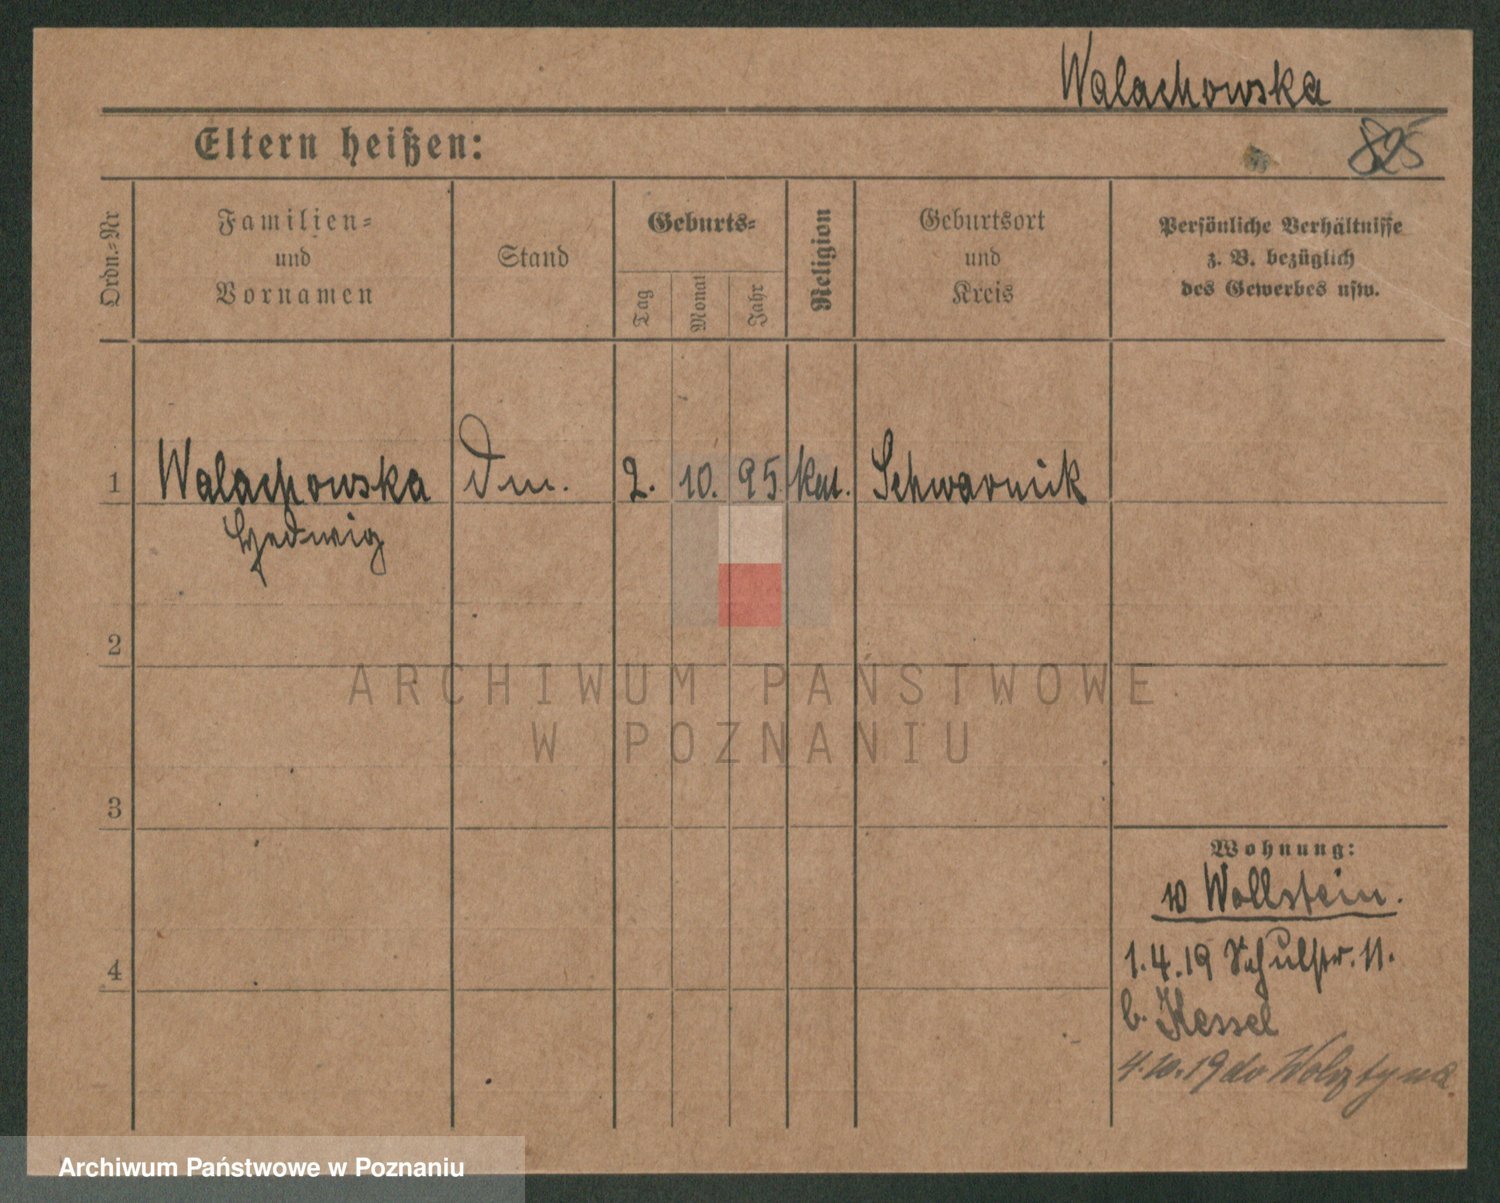 Walachowska
Eltern heißen:
825
Ordn.-Nr
Familien-
und
Vornamen
Stand
Geburts-
Tag
Monat
Jahr
Religion
Geburtsort
und
Kreis
Persönliche Verhältnisse
z. B. bezüglich
des Gewerbes usw.
1 Walachowska Dm. 2. 10. 95 kat.
Hedwig
2
ARCHIWUM PAŃSTWOWE
W POZNANIU
3
Wohnung:
Wollstein.
4
1.4.19 Schulstr. 11.
b. Kessel
4.10.19 do Wolsztyna
Archiwum Państwowe w Poznaniu